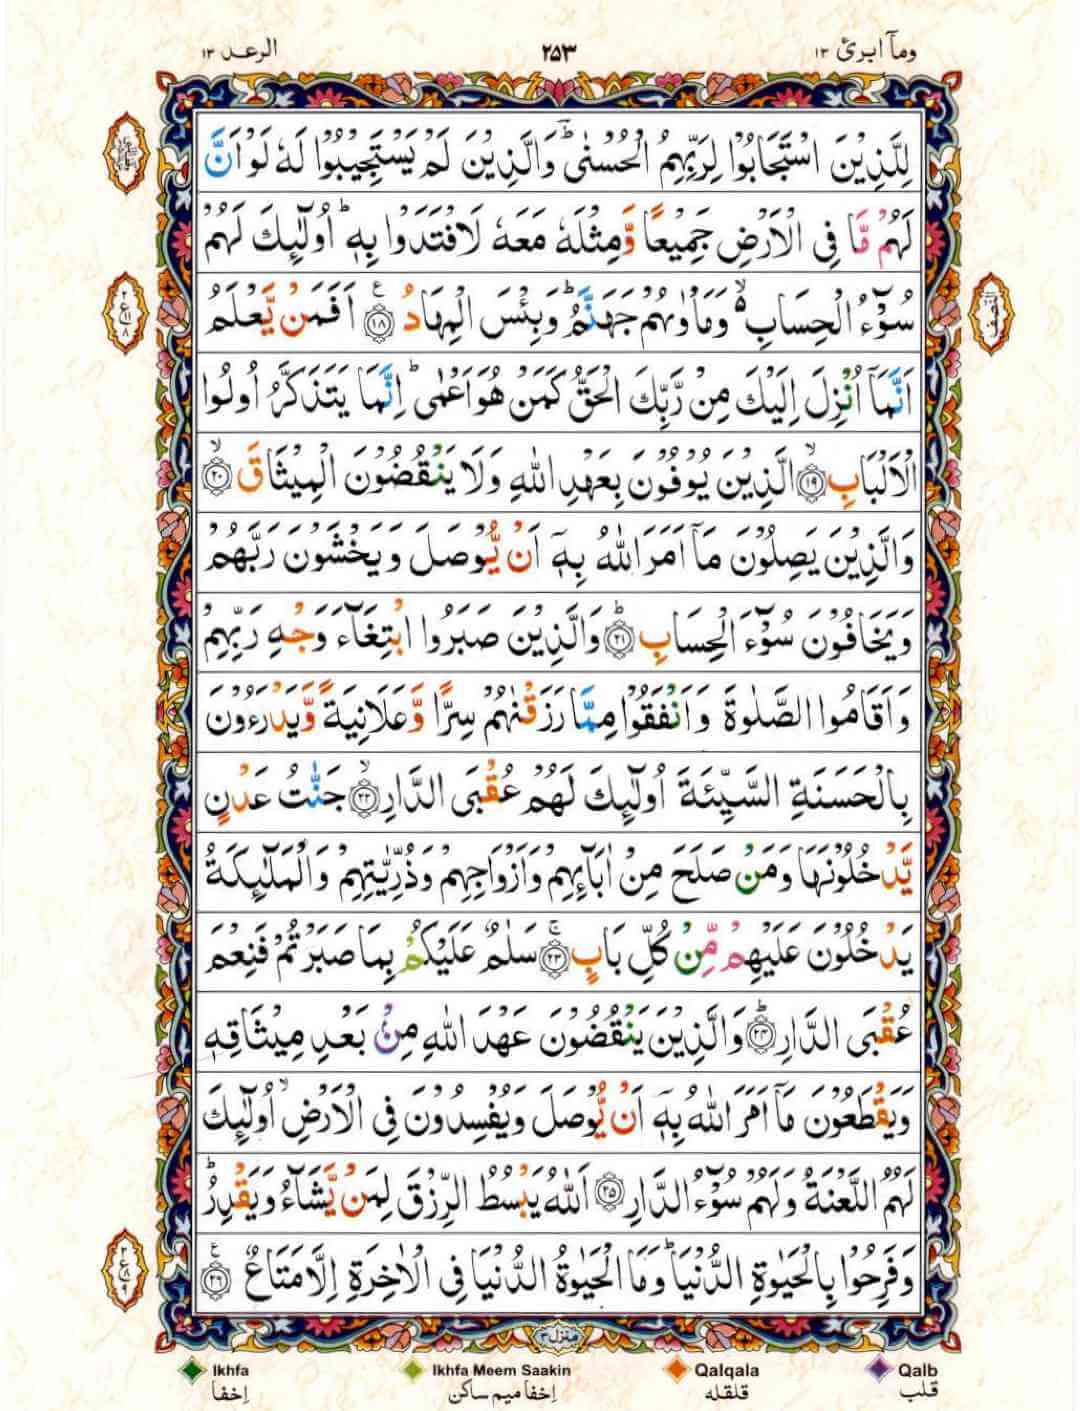 ومآ ابرئ ١٣ ٢٥٣ الرعد ١٣
لِلَّذِيْنَ اسْتَجَابُوْا لِرَبِّهِمُ الْحُسْنٰى ؔؕ وَالَّذِيْنَ لَمْ يَسْتَجِيْبُوْا لَهٗ لَوْ اَنَّ
لَهُمْ مَّا فِى الْاَرْضِ جَمِيْعًا وَّمِثْلَهٗ مَعَهٗ لَافْتَدَوْا بِهٖ ؕ اُولٰٓئِكَ لَهُمْ
سُوْٓءُ الْحِسَابِ ۙ۬ وَمَاْوٰىهُمْ جَهَنَّمُ ؕ وَبِئْسَ الْمِهَادُ ۧ‏ ﴿۱۸﴾ اَفَمَنْ يَّعْلَمُ
اَنَّمَاۤ اُنْزِلَ اِلَيْكَ مِنْ رَّبِّكَ الْحَقُّ كَمَنْ هُوَ اَعْمٰى ؕ اِنَّمَا يَتَذَكَّرُ اُولُوا
الْاَلْبَابِ ۙ ﴿۱۹﴾ الَّذِيْنَ يُوْفُوْنَ بِعَهْدِ اللّٰهِ وَلَا يَنْقُضُوْنَ الْمِيْثَاقَ ۙ ﴿۲۰﴾
وَالَّذِيْنَ يَصِلُوْنَ مَاۤ اَمَرَ اللّٰهُ بِهٖۤ اَنْ يُّوْصَلَ وَيَخْشَوْنَ رَبَّهُمْ
وَيَخَافُوْنَ سُوْٓءَ الْحِسَابِ ؕ ﴿۲۱﴾ وَالَّذِيْنَ صَبَرُوا ابْتِغَآءَ وَجْهِ رَبِّهِمْ
وَاَقَامُوا الصَّلٰوةَ وَاَنْفَقُوْا مِمَّا رَزَقْنٰهُمْ سِرًّا وَّعَلَانِيَةً وَّيَدْرَءُوْنَ
بِالْحَسَنَةِ السَّيِّئَةَ اُولٰٓئِكَ لَهُمْ عُقْبَى الدَّارِ ۙ ﴿۲۲﴾ جَنّٰتُ عَدْنٍ
يَّدْخُلُوْنَهَا وَمَنْ صَلَحَ مِنْ اٰبَآئِهِمْ وَاَزْوَاجِهِمْ وَذُرِّيّٰتِهِمْ وَالْمَلٰٓئِكَةُ
يَدْخُلُوْنَ عَلَيْهِمْ مِّنْ كُلِّ بَابٍ ۚ ﴿۲۳﴾ سَلٰمٌ عَلَيْكُمْ بِمَا صَبَرْتُمْ فَنِعْمَ
عُقْبَى الدَّارِ ؕ ﴿۲۴﴾ وَالَّذِيْنَ يَنْقُضُوْنَ عَهْدَ اللّٰهِ مِنْۢ بَعْدِ مِيْثَاقِهٖ
وَيَقْطَعُوْنَ مَاۤ اَمَرَ اللّٰهُ بِهٖۤ اَنْ يُّوْصَلَ وَيُفْسِدُوْنَ فِى الْاَرْضِ ۙ اُولٰٓئِكَ
لَهُمُ اللَّعْنَةُ وَلَهُمْ سُوْٓءُ الدَّارِ ﴿۲۵﴾ اَللّٰهُ يَبْسُطُ الرِّزْقَ لِمَنْ يَّشَآءُ وَيَقْدِرُ ؕ
وَفَرِحُوْا بِالْحَيٰوةِ الدُّنْيَا ؕ وَمَا الْحَيٰوةُ الدُّنْيَا فِى الْاٰخِرَةِ اِلَّا مَتَاعٌ ۧ ﴿۲۶﴾
منزل ٣
Ikhfa Ikhfa Meem Saakin Qalqala Qalb
اِخفا اِخفا ميم ساكن قلقله قلب